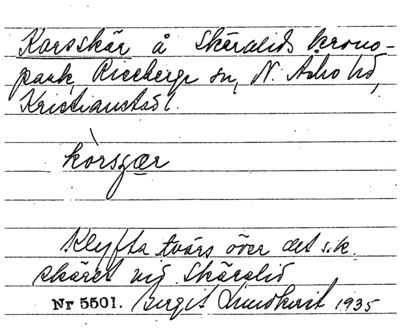 Korsskär å Skäralids krono-
park, Riseberga sn, N. Åsbo hd,
Kristianstads l.
kòrsʒær
Klyfta tvärs över det s.k.
skäret vid Skäralid
Nr 5501. Birgit Lindkvist 1935